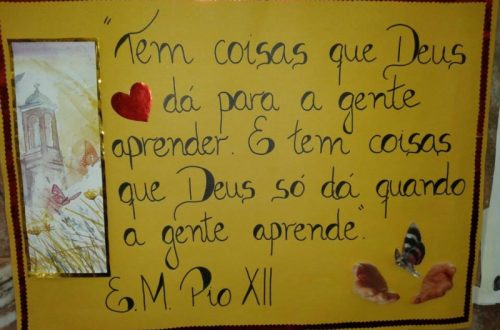 "Tem coisas que Deus
dá para a gente
aprender. E tem coisas
que Deus só dá quando
a gente aprende."
E.M. Pio XII